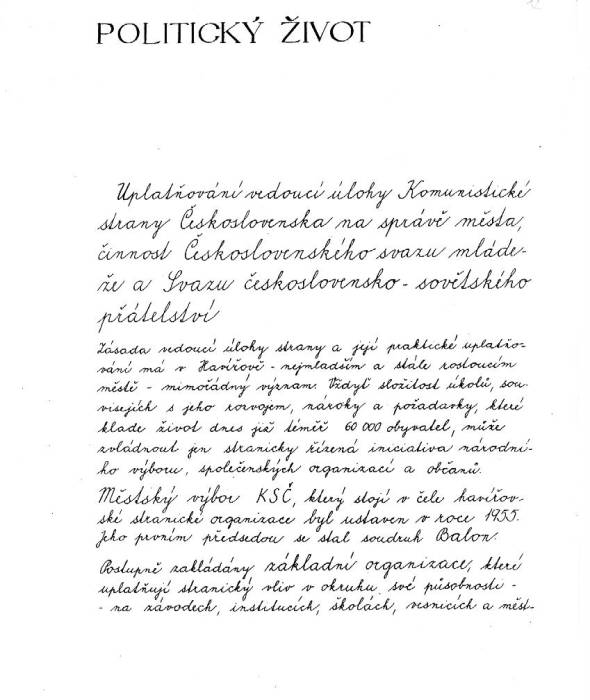 12
POLITICKÝ ŽIVOT
Uplatňování vedoucí úlohy Komunistické
strany Československa na správě města,
činnost Československého svazu mláde-
že a Svazu československo - sovětského
přátelství
Zásada vedoucí úlohy strany a její praktické uplatňo-
vání má v Havířově - nejmladším a stále rostoucím
městě - mimořádný význam. Vždyť složitost úkolů, sou-
visejích s jeho rozvojem, nároky a požadavky, které
klade život dnes již téměř 60 000 obyvatel, může
zvládnout jen stranicky řízená iniciativa národní-
ho výboru, společenských organizací a občanů.
Městský výbor KSČ, který stojí v čele havířov-
ské stranické organizace byl ustaven v roce 1955.
Jeho prvním předsedou se stal soudruh Balon.
Postupně zakládány základní organizace, které
uplatňují stranický vliv v okruhu své působnosti -
- na závodech, institucích, školách, vesnicích a měst-